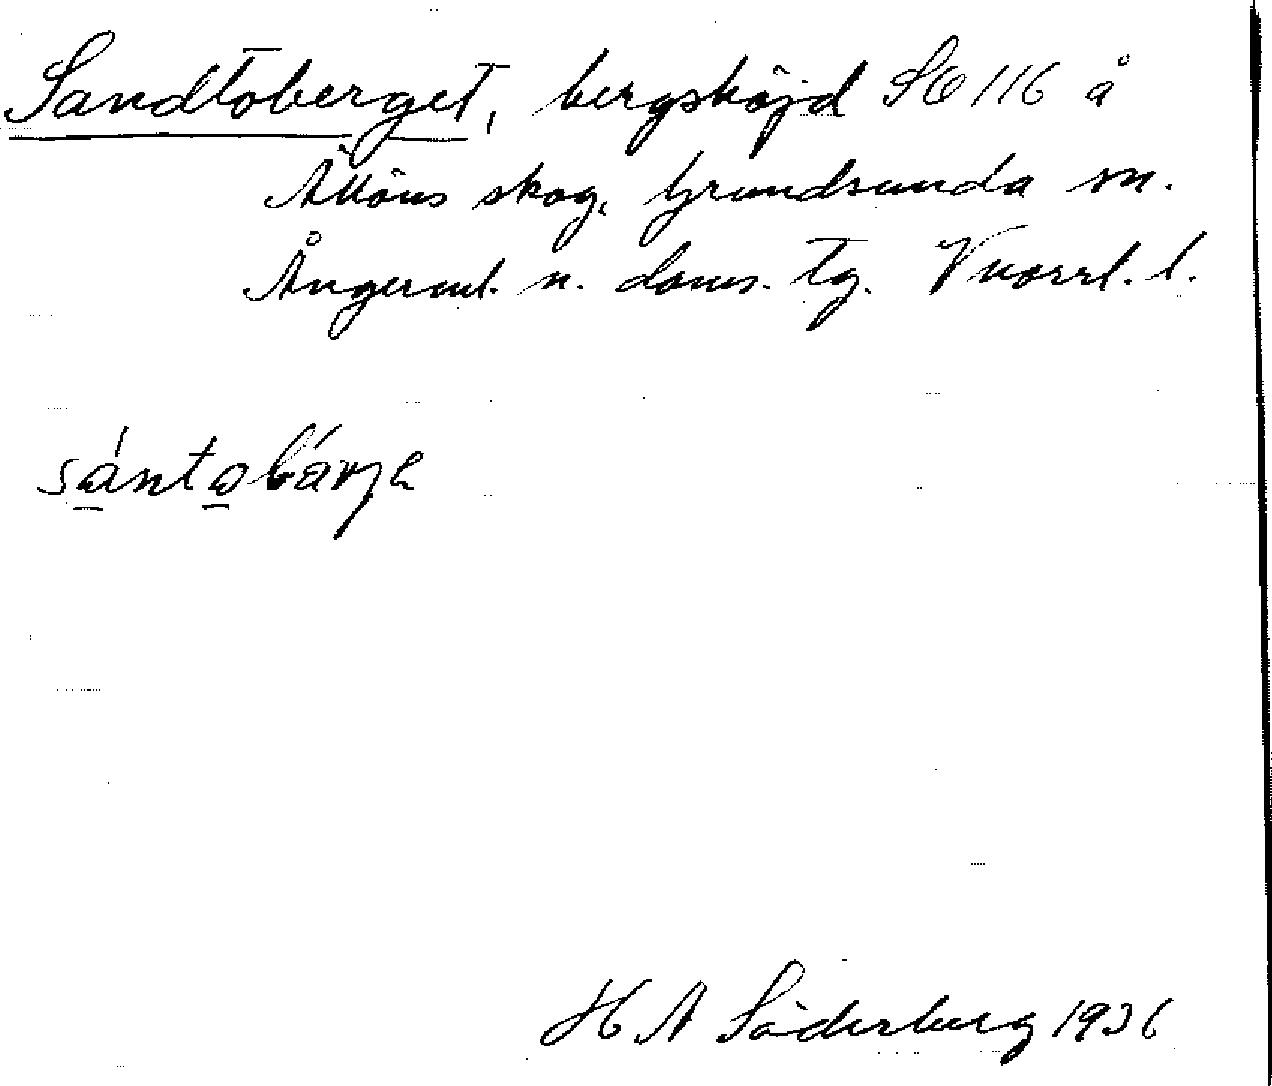 Sandtoberget, bergshöjd SO 116 å
Älköns skog, Grundsunda sn.
Ångerml. n. doms. tg. Vnorrl. l.
sántobárje
H A Söderberg 1936